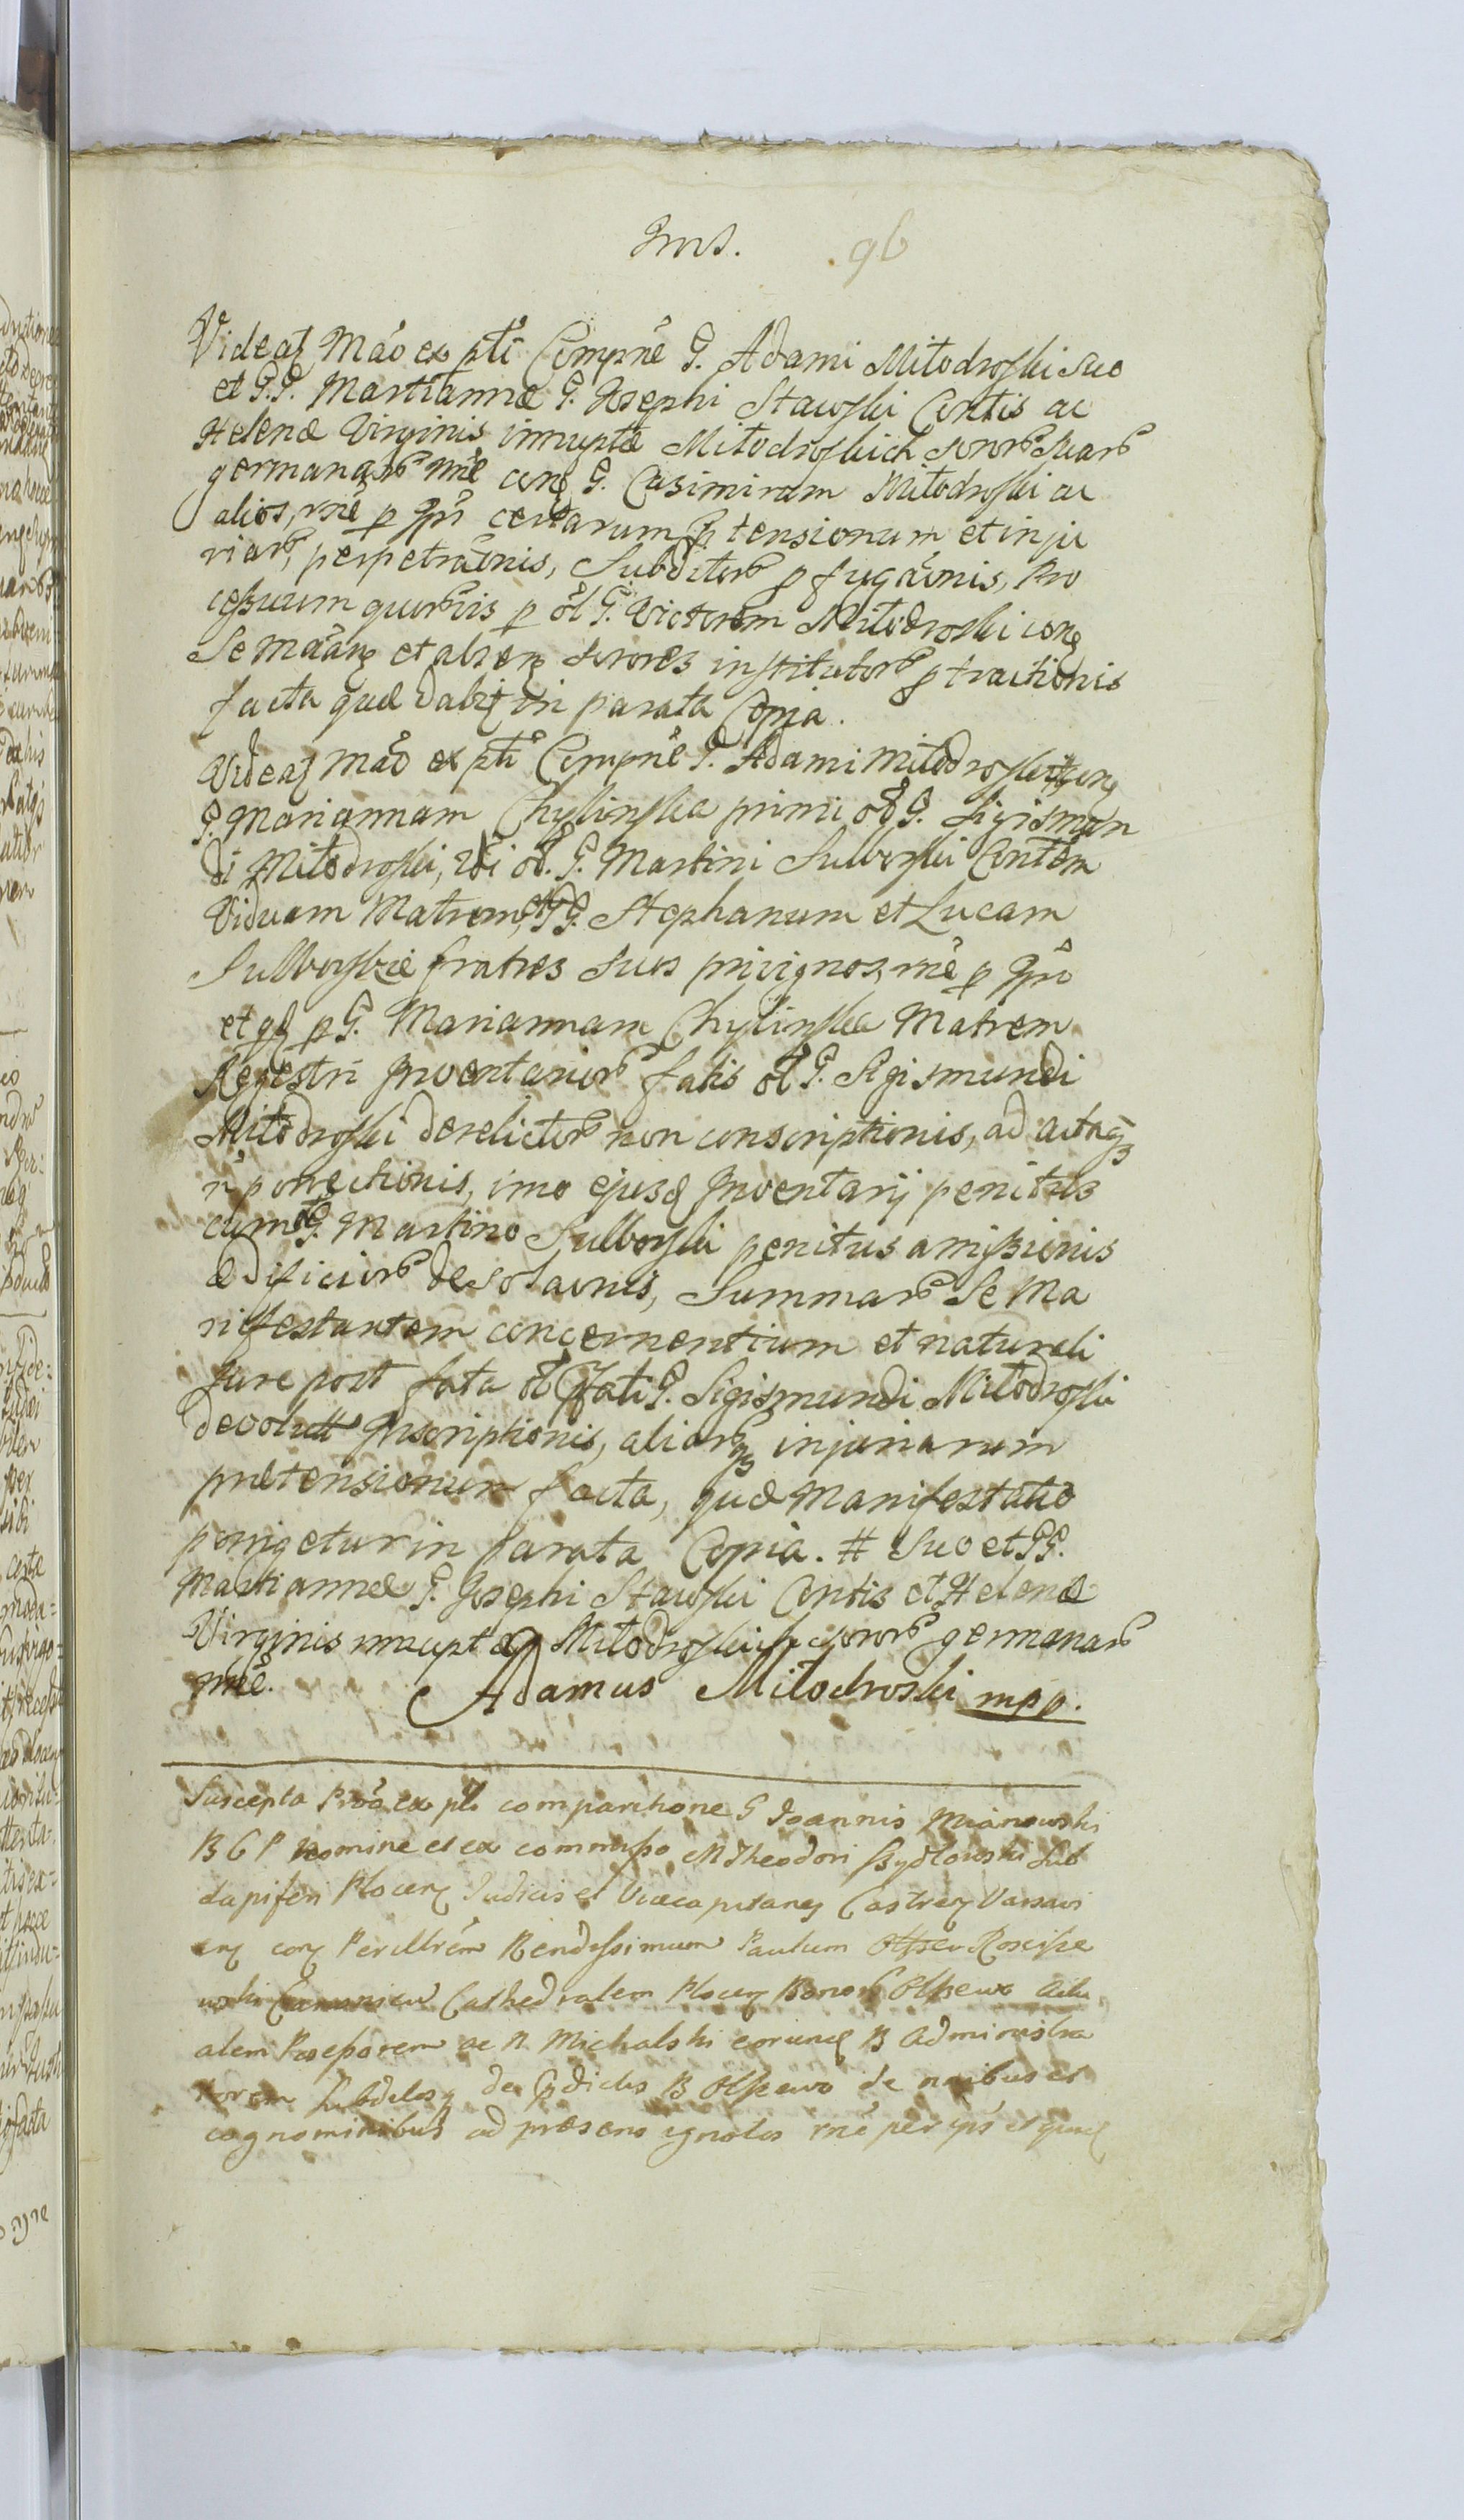 96
Videatʒ Mão ex pti Compne G. Adami Miłodroski suo
et G.G. Martiannæ G. Josephi Stawski Contis ac
Helenæ Virginis innuptæ Miłodroskich soror. suar.
germanar. nne con. G. Casimirum Miłodroski ac
alios, rne p certarum ptensionum et inju
riar, perpetraõnis, Subditor. pfugaõnis, Pro
cessuum quorvis p ol G. Victorem Miłodroski con
Se Mãan et alien sorores institutor. ptractionis
facta quæ dabit in parata Copia.
Videatʒ Mão ex pti Compne G. Adami Miłodroski con
G. Mariannam Chylinska primi ol G. Sigismun
di Miłodroski, 2di ol. G. Martini Sulborski Contem
Viduam Matrem, et GG. Stephanum et Lucam
Sulborskie fratres suos privignos, rne p
et p G. Mariannam Chylinska Matrem
Regestri Inventarior. fatis ol G. Sigismundi
Miłodroski derelictor. non conscriptionis, ad actaqʒ
n porrectionis, imo ejusd Inventarij penitus
cum G. Martino Sulborski penitus amissionis
ædificior. desolaonis, Summar. Se Ma
nifestantem concernentium et naturali
jure post fata ol G. Sigismundi Miłodroski
devolut Inscriptionis, aliarqʒ injuriarum
prætensionum facta, quæ Manifestatio
porrigetur in parata Copia. # Suo et GG.
Martiannæ G. Josephi Stawski Contis et Helenæ
Virginis innuptæ Miłodroskich soror. germanar.
nne. Adamus Miłodroski mpp.
Suscepta Proõ ex pte comparitione G Joannis Mianowski
B G P nomine et ex commisso M Theodori Szydłowski Sub
dapiferi Plocen Judicis et Vicecapitanej Castren Varsavi
en con Perillrem Rendissimum Paulum
Cathedralem Plocen Bonor. Olszewo actu
alem Possessorem ac N Michalski eorund B Administra
torem Subditosq de prædictis B Olszewo de nnibus et
cognominibus ad præsens ignotos rne per